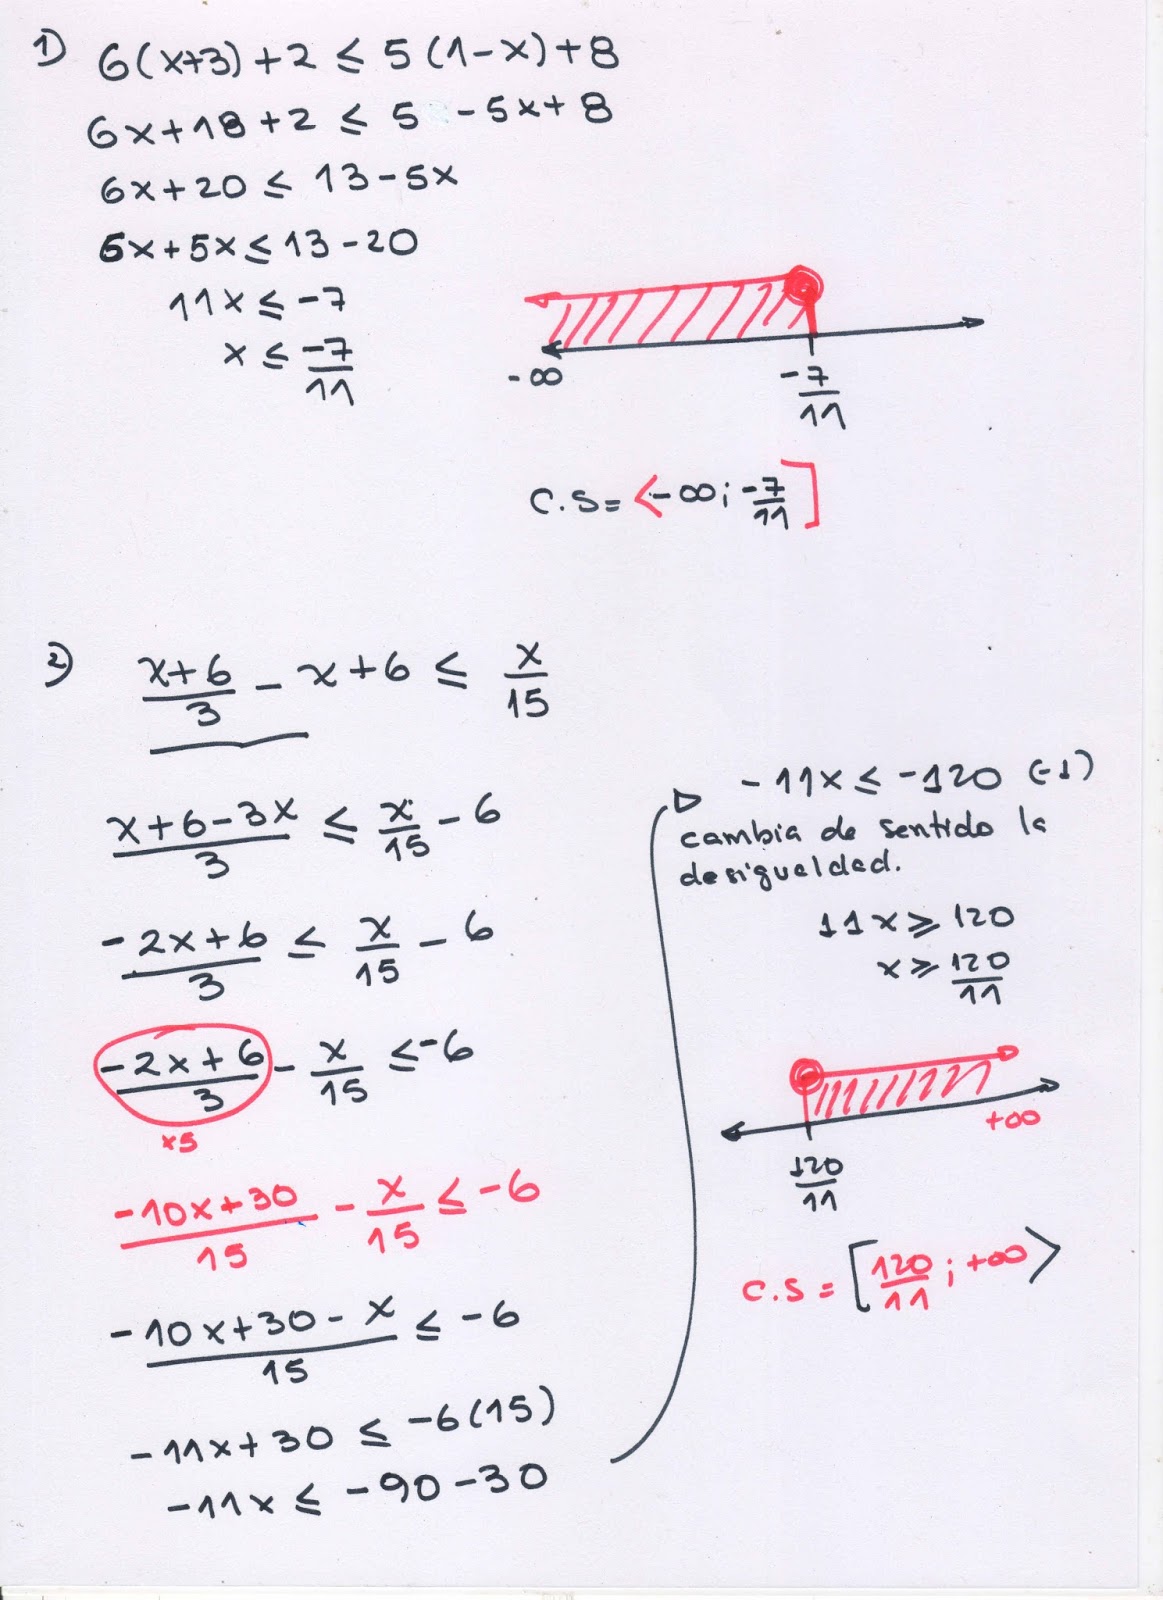 1) 6(x+3)+2 ≤ 5(1-x)+8
6x+18+2 ≤ 5 -5x+8
6x+20 ≤ 13-5x
6x+5x ≤ 13-20
11x ≤ -7
x ≤ -7/11
-∞ -7/11
C.S = <-∞; -7/11]
2) x+6/3 - x+6 ≤ x/15
x+6-3x/3 ≤ x/15 - 6
-2x+6/3 ≤ x/15 - 6
-2x+6/3 - x/15 ≤ -6
x5
-10x+30/15 - x/15 ≤ -6
-10x+30-x/15 ≤ -6
-11x+30 ≤ -6(15)
-11x ≤ -90-30
-11x ≤ -120 (-1)
cambia de sentido la
desigualdad.
11x ≥ 120
x ≥ 120/11
+∞
120/11
C.S = [120/11; +∞>